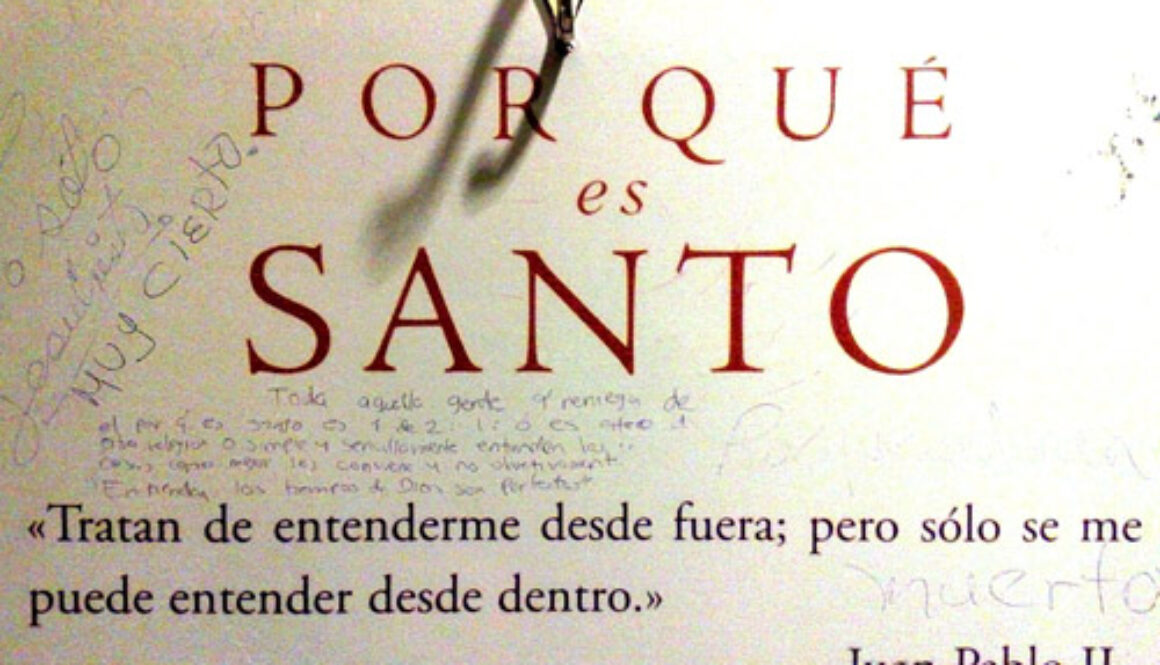 POR QUÉ
es
SANTO
MUY CIERTO.
Toda aquella gente q' reniega de
el por q' es santo es 1 de 2: 1: ó es ateo u
otra religion o simple y sencillamente entienden las
cosas como mejor les conviene y no objetivament
"Entiendan, los tiempos de Dios son perfectos"
«Tratan de entenderme desde fuera; pero sólo se me
puede entender desde dentro.»
muerto
Juan Pablo II